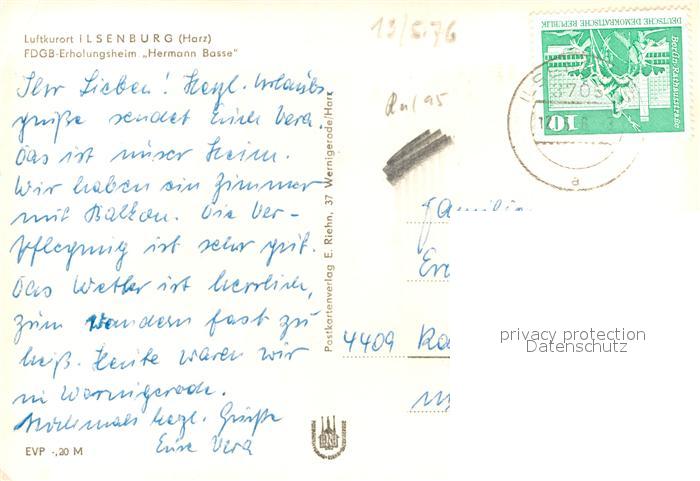 Luftkurort ILSENBURG (Harz)
FDGB-Erholungsheim „Hermann Basse"
Ihr Lieben! Hezl. Urlaubs
grüße sendet Euch Vera.
Das ist unser Heim.
Wir haben ein Zimmer
mit Balkon. Die Ver-
pflegung ist sehr gut.
Das Wetter ist herrlich,
zum wandern fast zu
heiß. Heute waren wir
in Wernigerode.
Nochmals hezl. Grüße
Eure Vera
EVP -,20 M
Postkartenverlag E. Riehn, 37 Wernigerode/Harz
13/5.76
DEUTSCHE DEMOKRATISCHE REPUBLIK
Berlin, Rathausstraße
10
3705
a
Familie
4409
privacy protection
Datenschutz